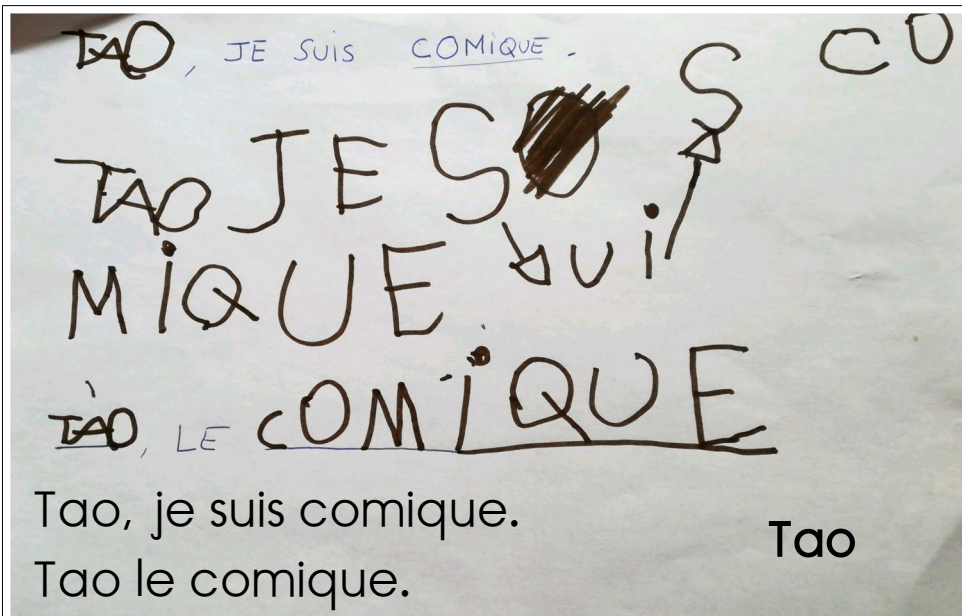 TAO, JE SUIS COMiQUE.
TAO JE S ui S CO
MiQUE.
TAO, LE COMiQUE
Tao, je suis comique.
Tao le comique.
Tao